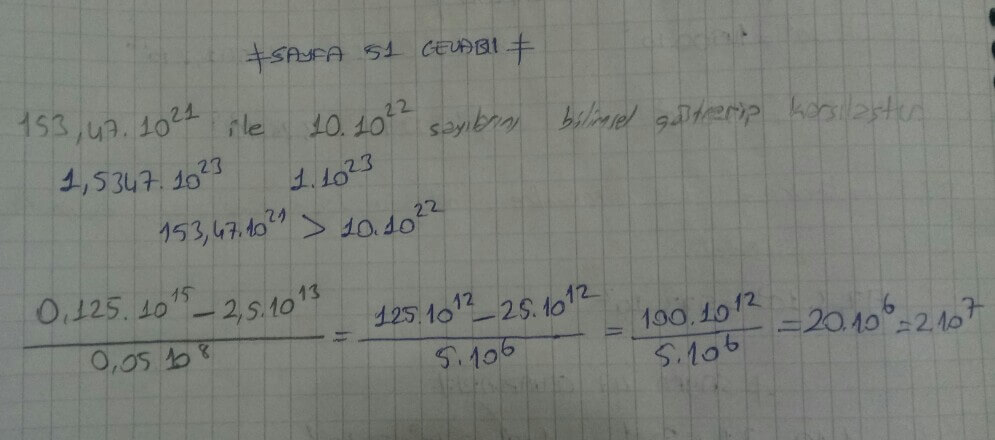 ≠SAYFA 51 CEVABI≠
153,47.10²¹ ile 10.10²² sayıların bilimsel gösterip karşılaştır.
1,5347.10²³ 1.10²³
153,47.10²¹ > 10.10²²
(0,125.10¹⁵ – 2,5.10¹³)/(0,05 10⁸) = (125.10¹² – 25.10¹²)/(5.10⁶) = (100.10¹²)/(5.10⁶) = 20.10⁶ = 2.10⁷